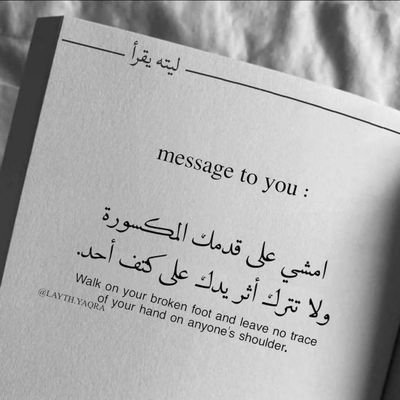 ليته يقرأ
message to you :
امشي على قدمك المكسورة
ولا تترك أثر يدك على كتف أحد.
Walk on your broken foot and leave no trace
of your hand on anyone's shoulder.
@LAYTH.YAQRA